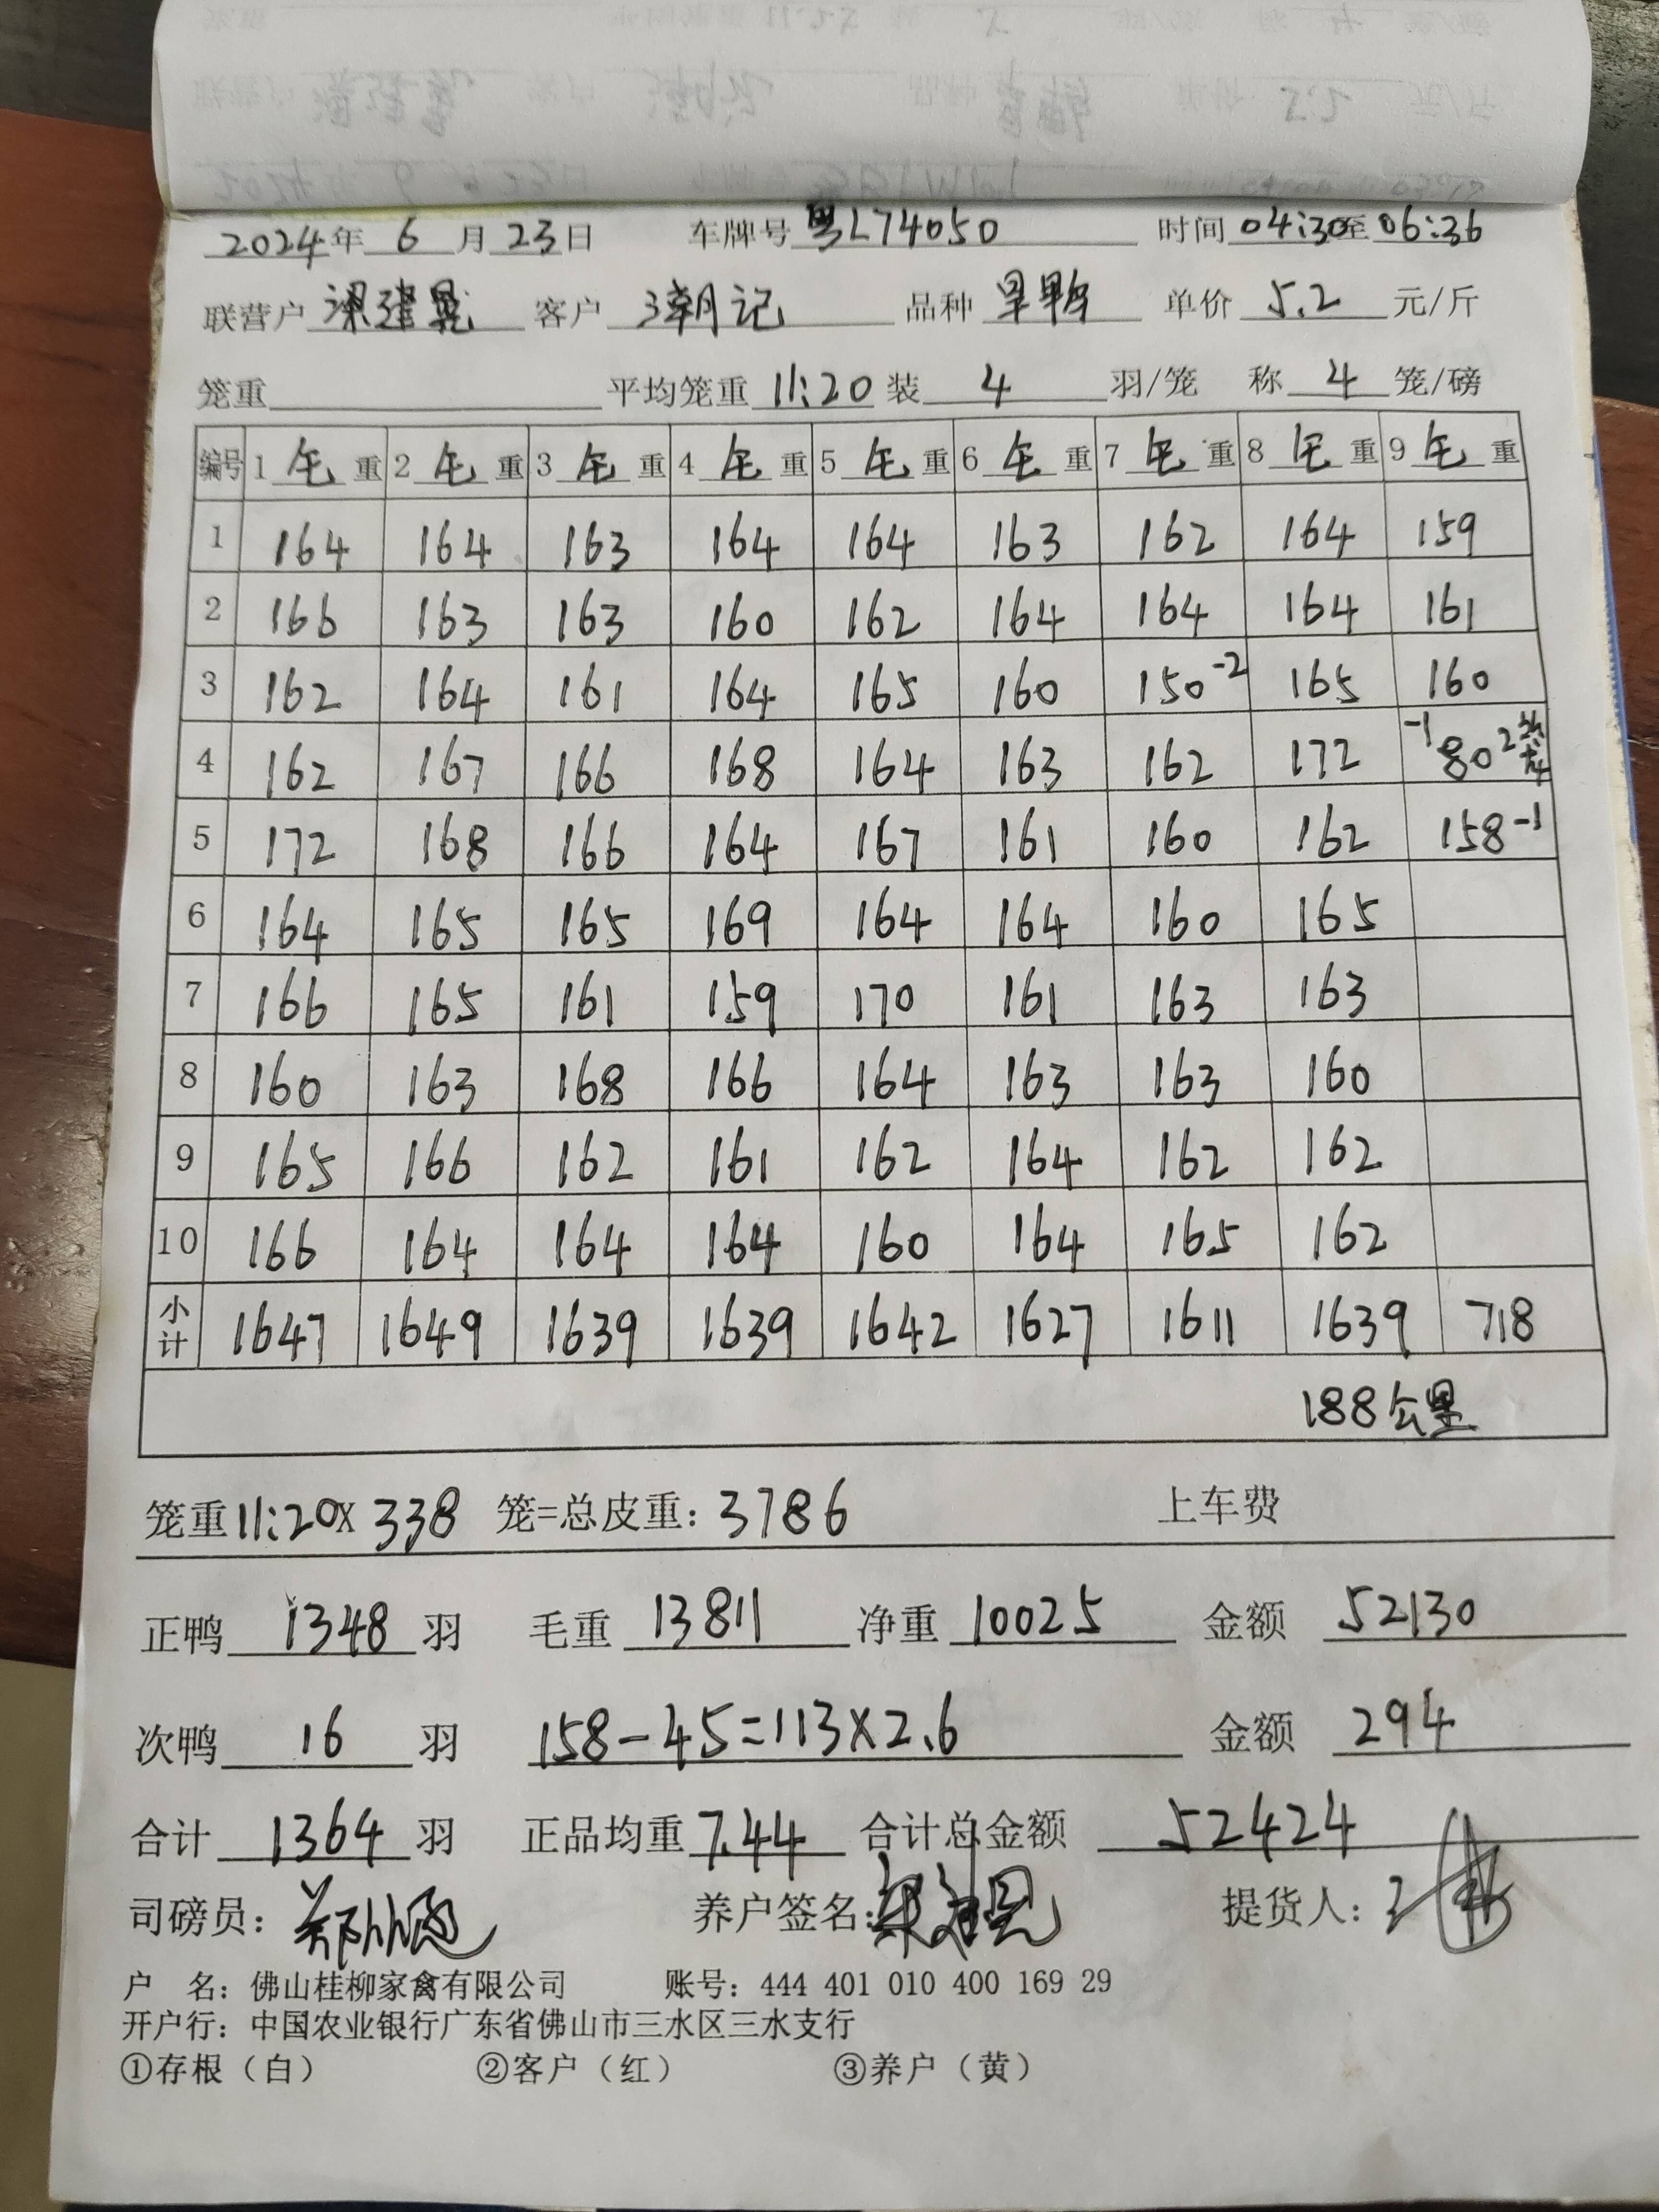 2024年 6 月 23 日 车牌号 粤L74050 时间 04:30至 06:36
联营户 梁建晃 客户 潮记 品种 旱鸭 单价 5.2 元/斤
笼重 平均笼重 11:20 装 4 羽/笼 称 4 笼/磅
编号 1 毛 重 2 毛 重 3 毛 重 4 毛 重 5 毛 重 6 毛 重 7 毛 重 8 毛 重 9 毛 重
1 164 164 163 164 164 163 162 164 159
2 166 163 163 160 162 164 164 164 161
3 162 164 161 164 165 160 150-2 165 160
4 162 167 166 168 164 163 162 172 -1 80 2笼
5 172 168 166 164 167 161 160 162 158-1
6 164 165 165 169 164 164 160 165
7 166 165 161 159 170 161 163 163
8 160 163 168 166 164 163 163 160
9 165 166 162 161 162 164 162 162
10 166 164 164 164 160 164 165 162
小计 1647 1649 1639 1639 1642 1627 1611 1639 718
188公里
笼重11:20X 338 笼=总皮重: 3786 上车费
正鸭 1348 羽 毛重 13811 净重 10025 金额 52130
次鸭 16 羽 158-45=113×2.6 金额 294
合计 1364 羽 正品均重 7.44 合计总金额 52424
司磅员: 养户签名: 提货人:
户 名: 佛山桂柳家禽有限公司 账号: 444 401 010 400 169 29
开户行: 中国农业银行广东省佛山市三水区三水支行
①存根（白） ②客户（红） ③养户（黄）